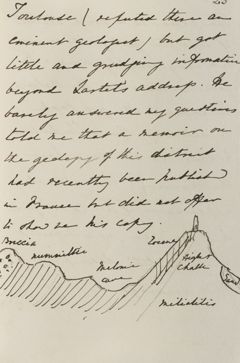 Toulouse (reputed there an
eminent geologist) but got
little and grudging information
beyond Lartet's address. He
barely answered my questions
told me that a memoir on
the geology of this district
had recently been published
in France but did not offer
to show me his copy.
Breccia
nummulitic
Melonie
cave
Eocene
chalk